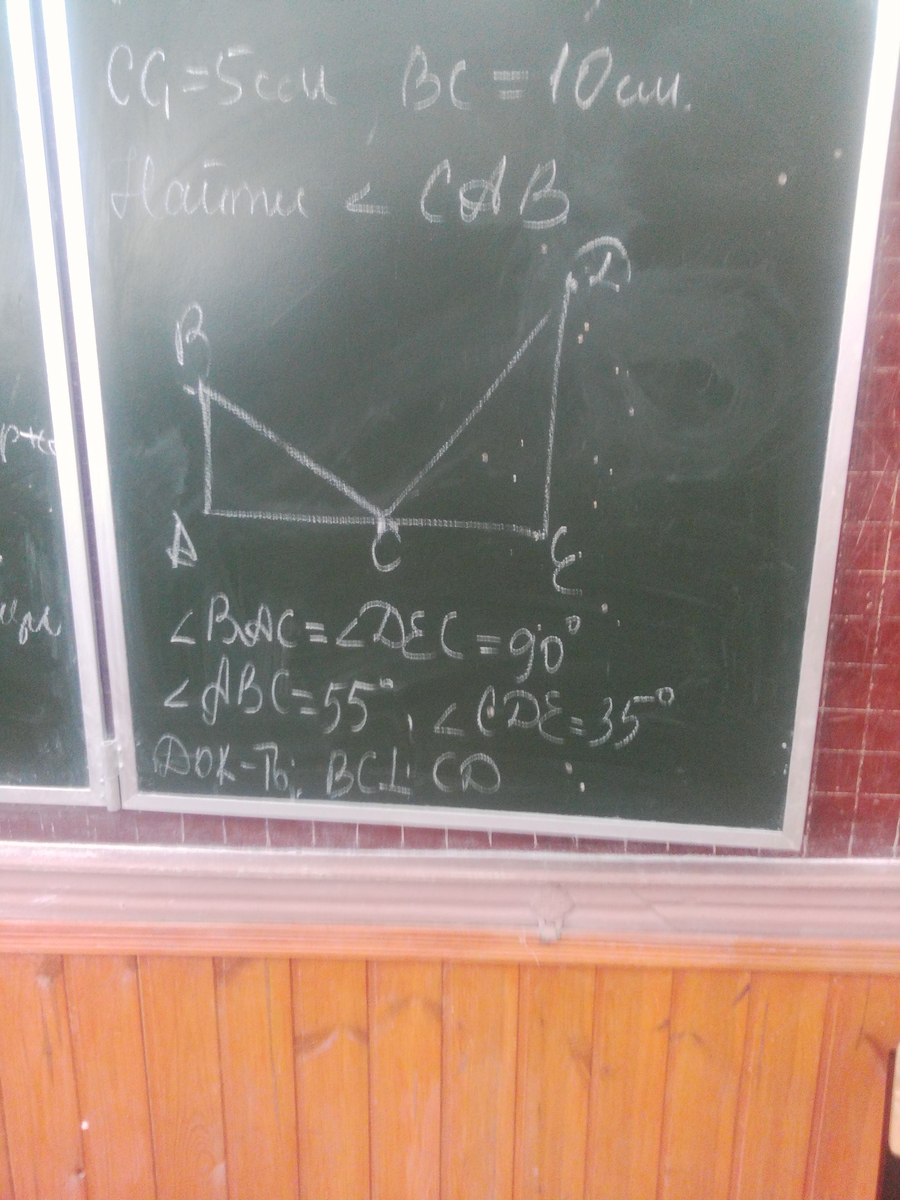 CC₁=5см BC=10см.
Найти < CAB
D
B
A
C
E
∠BAC=∠DEC=90°
∠ABC=55°, ∠CDE=35°
Док-ть: BC⊥CD